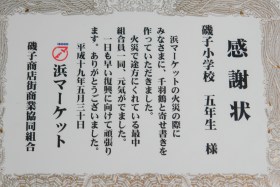 感謝状
磯子小学校 五年生 様
浜マーケットの火災の際に
みなさまに、千羽鶴と寄せ書きを
作っていただきました。
火災で途方にくれている最中
組合員一同、元気がでました。
一日も早い復興に向けて頑張り
ます。ありがとうございました。
平成十九年五月三十日
浜マーケット
磯子商店街商業協同組合